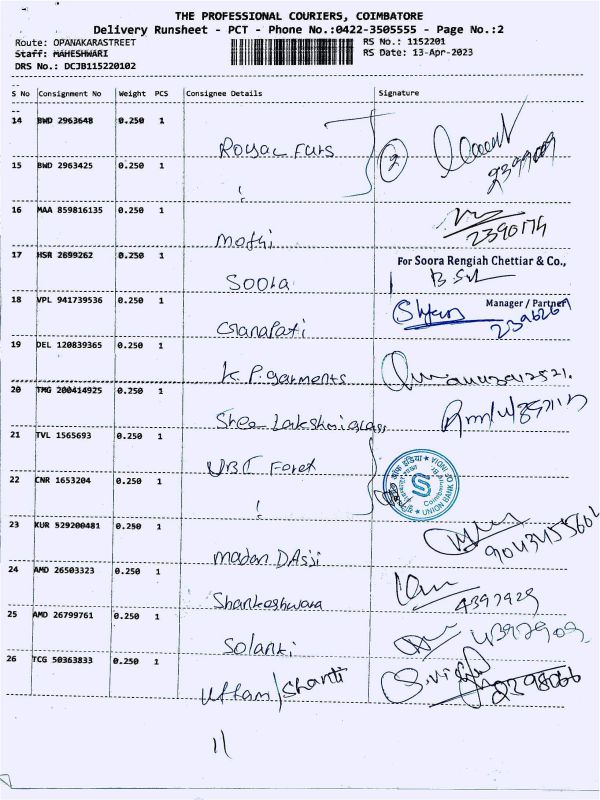 THE PROFESSIONAL COURIERS, COIMBATORE
Delivery Runsheet - PCT - Phone No.:0422-3505555 - Page No.:2
Route: OPANAKARASTREET RS No.: 1152201
Staff: MAHESHWARI RS Date: 13-Apr-2023
DRS No.: DCJB115220102
S No Consignment No Weight PCS Consignee Details Signature
14 BWD 2963648 0.250 1 Royal Furs 2
15 BWD 2963425 0.250 1
16 MAA 859816135 0.250 1 Mothi 2390174
17 HSR 2699262 0.250 1 Soora For Soora Rengiah Chettiar & Co.,
Manager / Partner
18 VPL 941739536 0.250 1 Ganapati
19 DEL 120839365 0.250 1 K.P. garments
20 TMG 200414925 0.250 1 Shree Lakshmi glass
21 TVL 1565693 0.250 1 UBI Forex
22 CNR 1653204 0.250 1 UNION BANK OF INDIA
23 KUR 529200481 0.250 1 Madan DAsji
24 AMD 26503323 0.250 1 Shankeshwara 4397929
25 AMD 26799761 0.250 1 Solanki 4397909
26 TCG 50363833 0.250 1 Uttam/Shanti 2398066
11